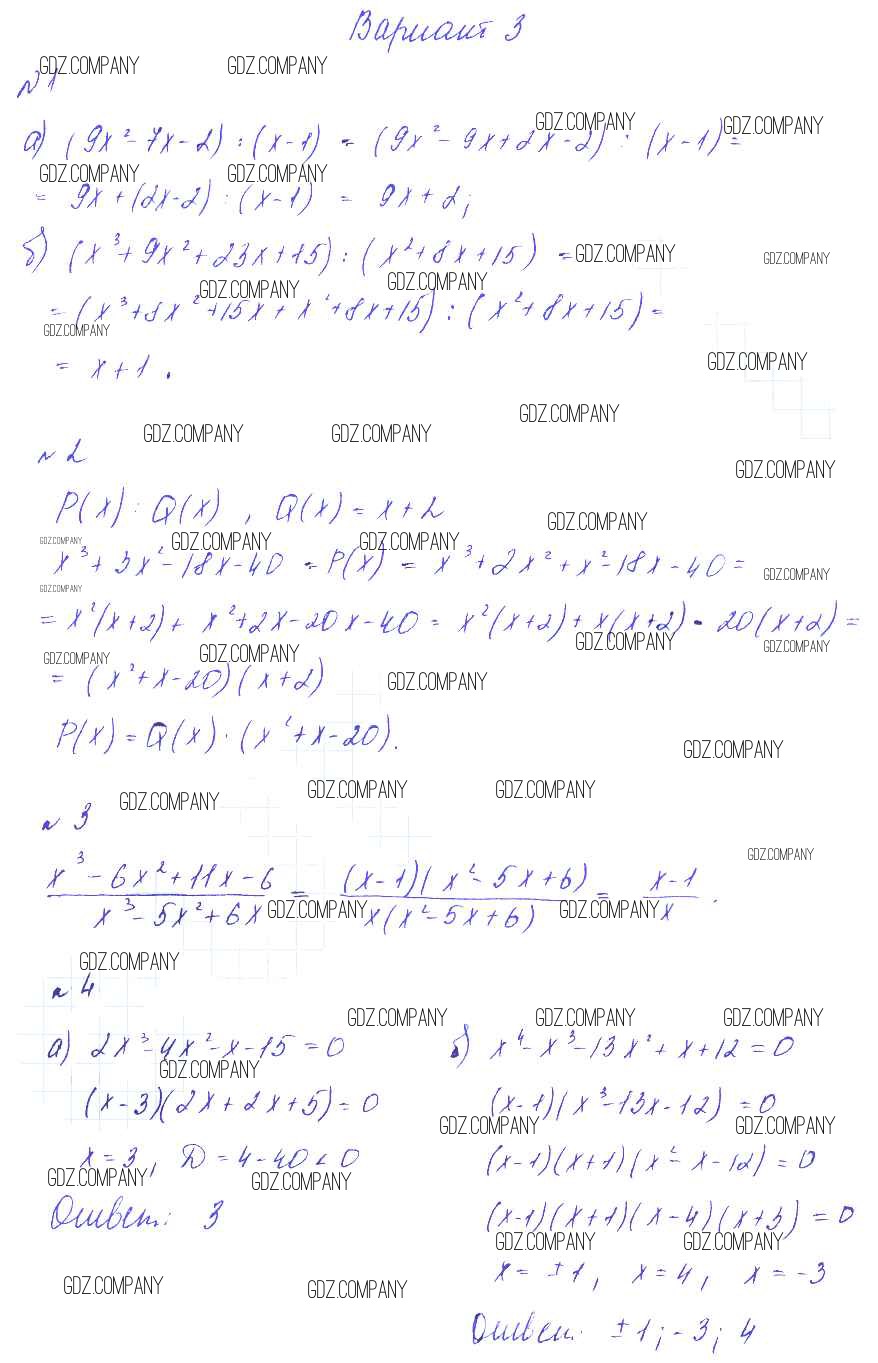 Вариант 3
GDZ.COMPANY GDZ.COMPANY
№1
GDZ.COMPANY GDZ.COMPANY
а) (9x² - 7x - 2) : (x - 1) = (9x² - 9x + 2x - 2) : (x - 1) =
GDZ.COMPANY GDZ.COMPANY
= 9x + (2x - 2) : (x - 1) = 9x + 2;
б) (x³ + 9x² + 23x + 15) : (x² + 8x + 15) =
GDZ.COMPANY GDZ.COMPANY
GDZ.COMPANY GDZ.COMPANY
= (x³ + 8x² + 15x + x² + 8x + 15) : (x² + 8x + 15) =
GDZ.COMPANY
= x + 1.
GDZ.COMPANY
GDZ.COMPANY
GDZ.COMPANY GDZ.COMPANY
№2
GDZ.COMPANY
P(x) : Q(x), Q(x) = x + 2
GDZ.COMPANY
GDZ.COMPANY GDZ.COMPANY GDZ.COMPANY
x³ + 3x² - 18x - 40 = P(x) = x³ + 2x² + x² - 18x - 40 =
GDZ.COMPANY
GDZ.COMPANY
= x²(x + 2) + x² + 2x - 20x - 40 = x²(x + 2) + x(x + 2) - 20(x + 2) =
GDZ.COMPANY GDZ.COMPANY
GDZ.COMPANY GDZ.COMPANY
= (x² + x - 20)(x + 2)
GDZ.COMPANY
P(x) = Q(x) · (x² + x - 20).
GDZ.COMPANY
GDZ.COMPANY GDZ.COMPANY GDZ.COMPANY
№3
GDZ.COMPANY
x³ - 6x² + 11x - 6 = (x - 1)(x² - 5x + 6) = x - 1
x³ - 5x² + 6x x(x² - 5x + 6) x .
GDZ.COMPANY GDZ.COMPANY
GDZ.COMPANY
№4
GDZ.COMPANY GDZ.COMPANY GDZ.COMPANY
а) 2x³ - 4x² - x - 15 = 0
GDZ.COMPANY
(x - 3)(2x + 2x + 5) = 0
x = 3, D = 4 - 40 < 0
GDZ.COMPANY GDZ.COMPANY
Ответ: 3
GDZ.COMPANY GDZ.COMPANY
б) x⁴ - x³ - 13x² + x + 12 = 0
(x - 1)(x³ - 13x - 12) = 0
GDZ.COMPANY GDZ.COMPANY
(x - 1)(x + 1)(x² - x - 12) = 0
(x - 1)(x + 1)(x - 4)(x + 3) = 0
GDZ.COMPANY GDZ.COMPANY
x = ±1, x = 4, x = -3
Ответ: ±1; -3; 4